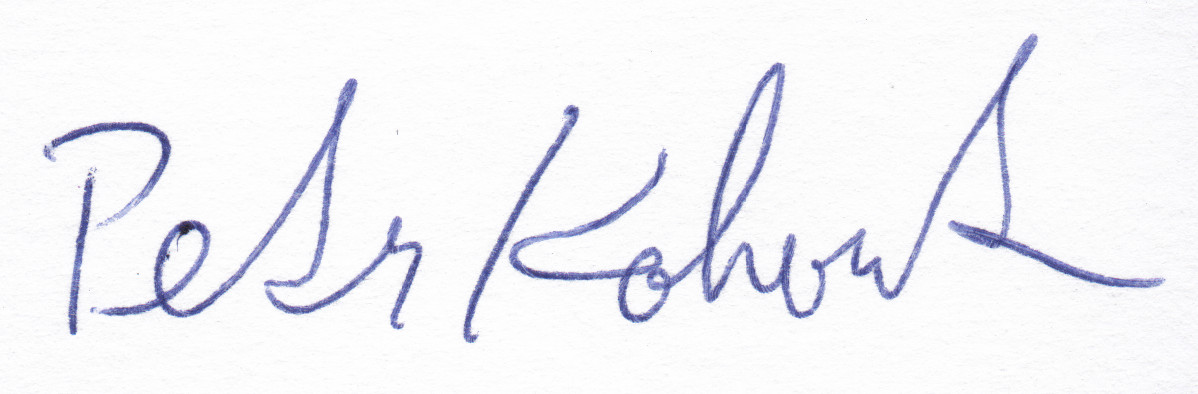 Petr Kohout